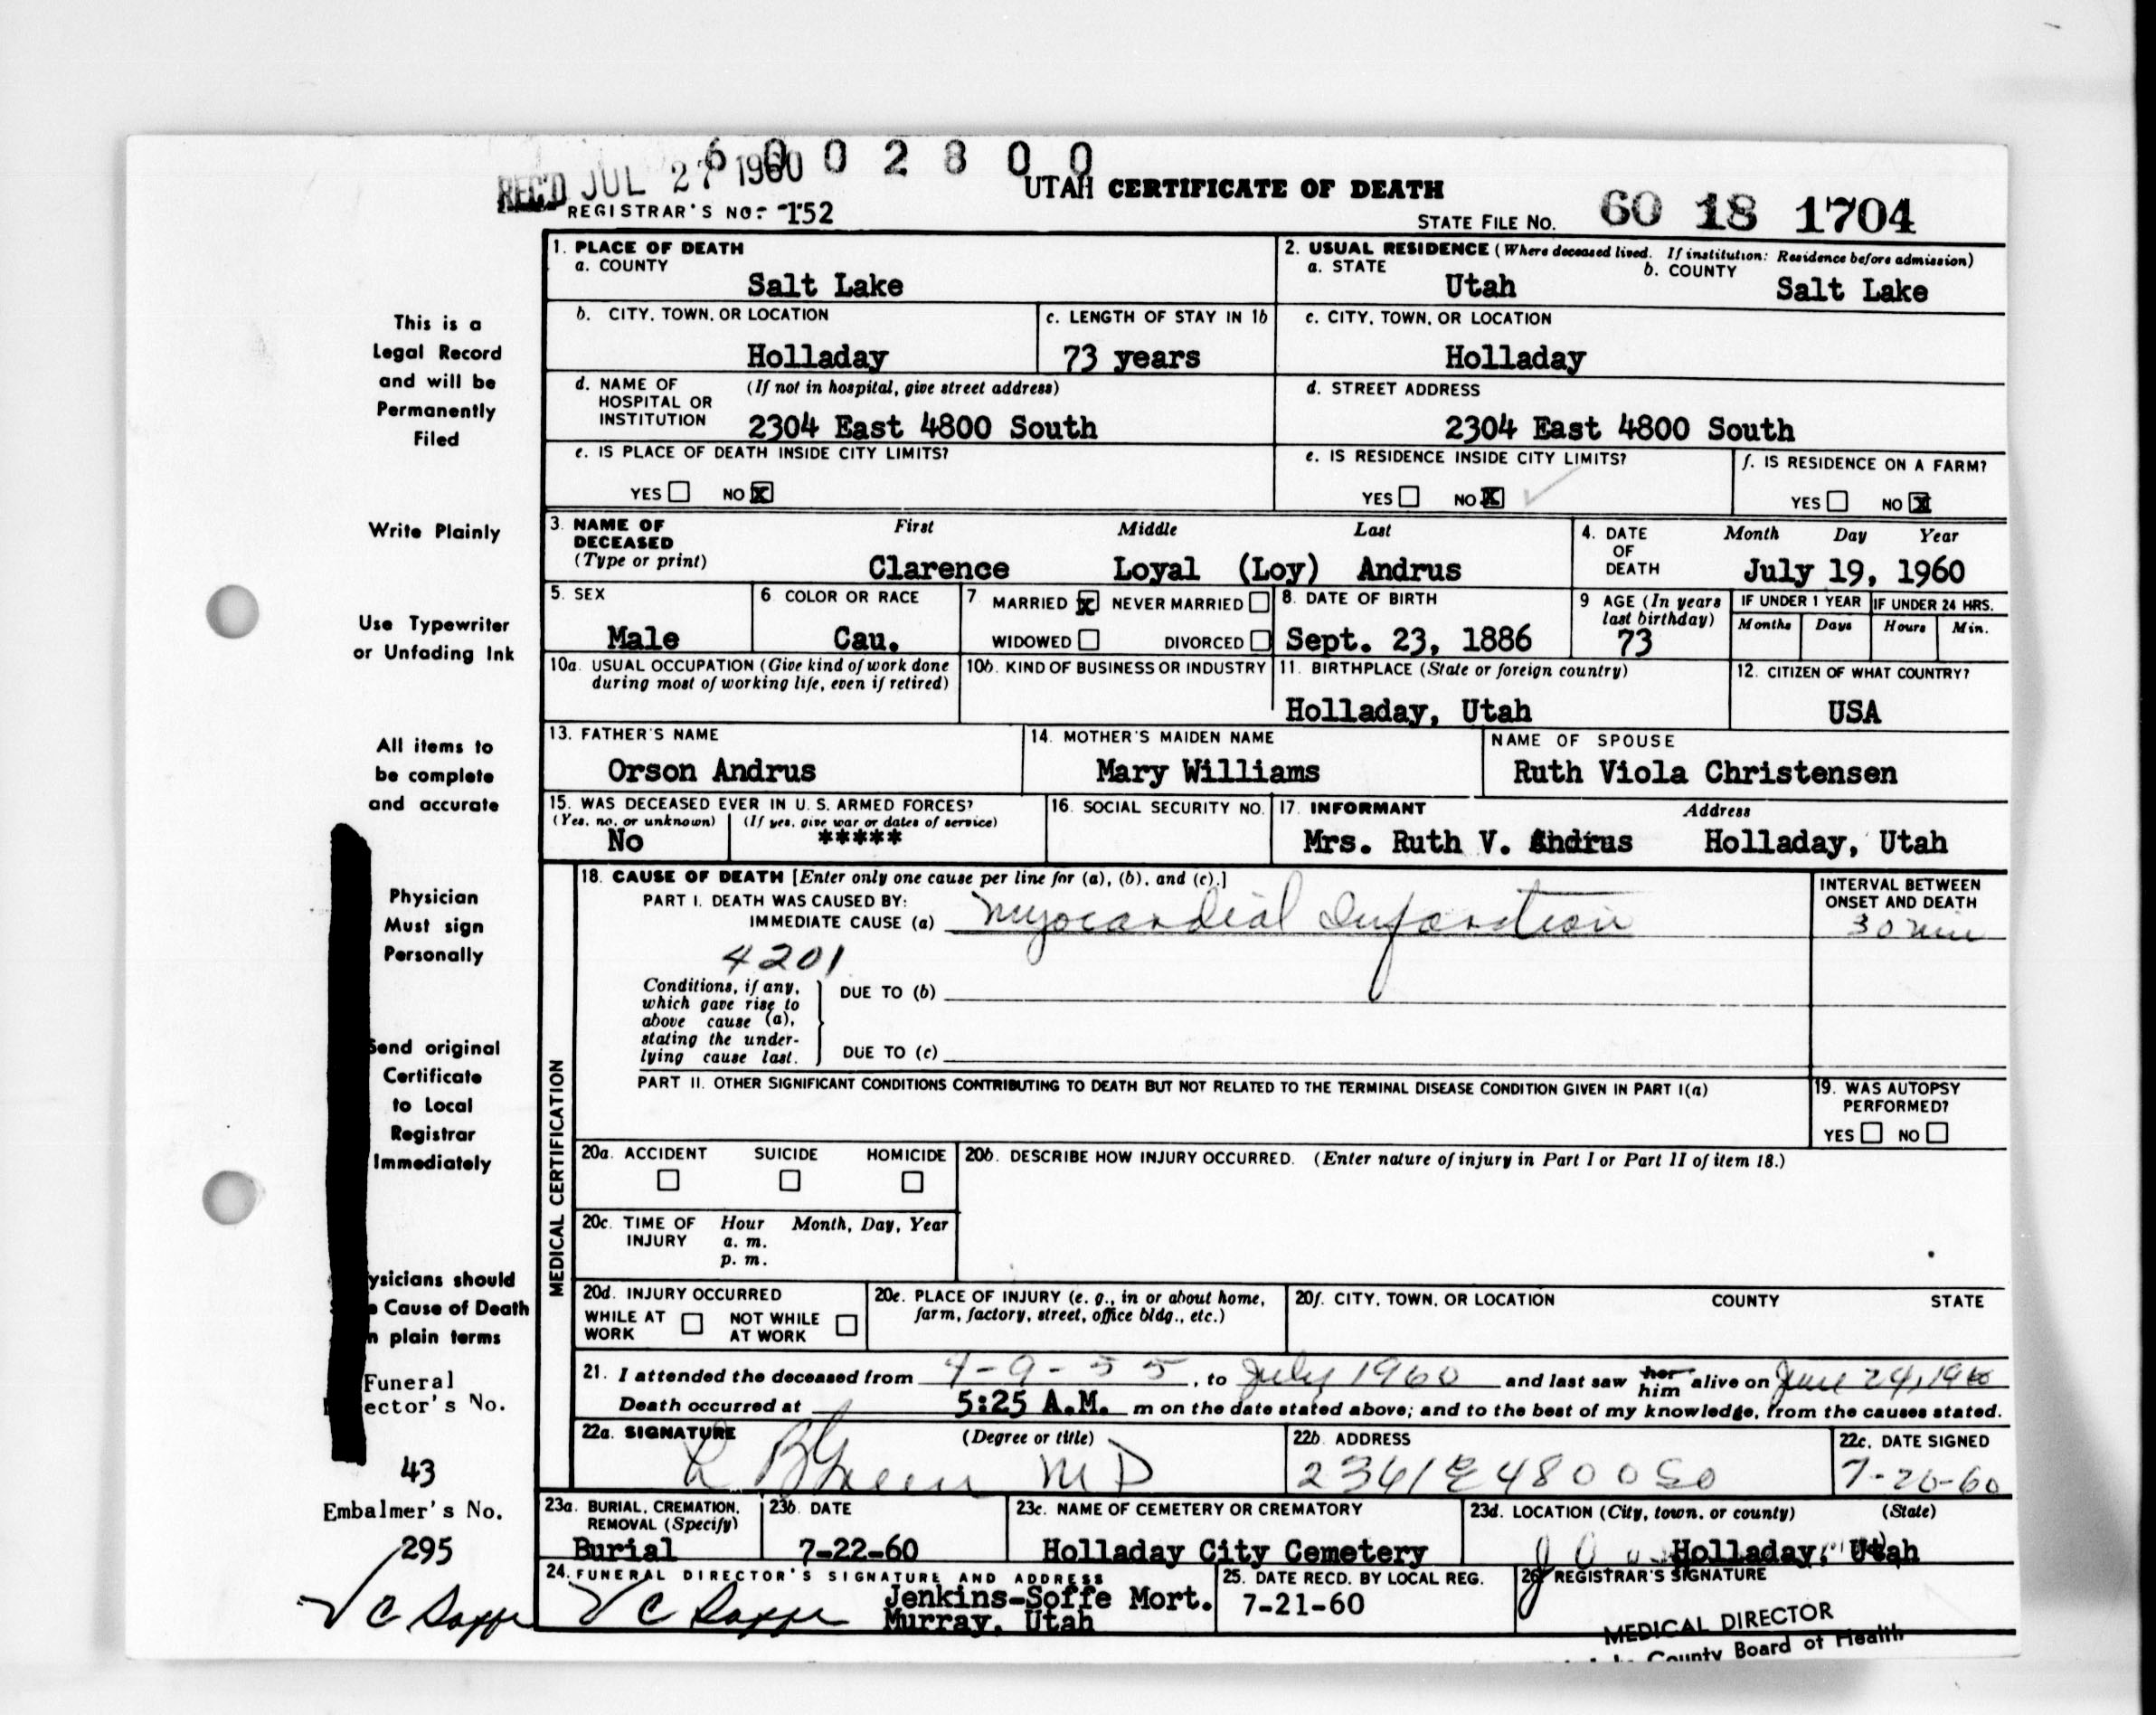 6 0 0 2 8 0 0
REC'D JUL 27 1960
UTAH CERTIFICATE OF DEATH
REGISTRAR'S NO. 152
STATE FILE NO. 60 18 1704
This is a
Legal Record
and will be
Permanently
Filed
Write Plainly
Use Typewriter
or Unfading Ink
All items to
be complete
and accurate
Physician
Must sign
Personally
Send original
Certificate
to Local
Registrar
Immediately
ysicians should
e Cause of Death
n plain terms
Funeral
ector's No.
43
Embalmer's No.
295
1. PLACE OF DEATH
a. COUNTY
Salt Lake
2. USUAL RESIDENCE (Where deceased lived. If institution: Residence before admission)
a. STATE
Utah
b. COUNTY
Salt Lake
b. CITY, TOWN, OR LOCATION
Holladay
c. LENGTH OF STAY IN 1b
73 years
c. CITY, TOWN, OR LOCATION
Holladay
d. NAME OF HOSPITAL OR INSTITUTION
(If not in hospital, give street address)
2304 East 4800 South
d. STREET ADDRESS
2304 East 4800 South
e. IS PLACE OF DEATH INSIDE CITY LIMITS?
YES NO X
e. IS RESIDENCE INSIDE CITY LIMITS?
YES NO X
f. IS RESIDENCE ON A FARM?
YES NO X
3. NAME OF DECEASED
(Type or print)
First Middle Last
Clarence Loyal (Loy) Andrus
4. DATE OF DEATH
Month Day Year
July 19, 1960
5. SEX
Male
6 COLOR OR RACE
Cau.
7 MARRIED X NEVER MARRIED
WIDOWED DIVORCED
8. DATE OF BIRTH
Sept. 23, 1886
9 AGE (In years last birthday)
73
IF UNDER 1 YEAR
Months Days
IF UNDER 24 HRS.
Hours Min.
10a. USUAL OCCUPATION (Give kind of work done during most of working life, even if retired)
10b. KIND OF BUSINESS OR INDUSTRY
11. BIRTHPLACE (State or foreign country)
Holladay, Utah
12. CITIZEN OF WHAT COUNTRY?
USA
13. FATHER'S NAME
Orson Andrus
14. MOTHER'S MAIDEN NAME
Mary Williams
NAME OF SPOUSE
Ruth Viola Christensen
15. WAS DECEASED EVER IN U. S. ARMED FORCES?
(Yes, no, or unknown) (If yes, give war or dates of service)
No *****
16. SOCIAL SECURITY NO.
17. INFORMANT Address
Mrs. Ruth V. Andrus Holladay, Utah
MEDICAL CERTIFICATION
18. CAUSE OF DEATH [Enter only one cause per line for (a), (b), and (c).]
PART I. DEATH WAS CAUSED BY:
IMMEDIATE CAUSE (a) Myocardial Infarction
INTERVAL BETWEEN ONSET AND DEATH
30 min
4201
Conditions, if any, which gave rise to above cause (a), stating the underlying cause last.
DUE TO (b)
DUE TO (c)
PART II. OTHER SIGNIFICANT CONDITIONS CONTRIBUTING TO DEATH BUT NOT RELATED TO THE TERMINAL DISEASE CONDITION GIVEN IN PART I(a)
19. WAS AUTOPSY PERFORMED?
YES NO
20a. ACCIDENT SUICIDE HOMICIDE
20b. DESCRIBE HOW INJURY OCCURRED. (Enter nature of injury in Part I or Part II of item 18.)
20c. TIME OF INJURY
Hour Month, Day, Year
a. m.
p. m.
20d. INJURY OCCURRED
WHILE AT WORK NOT WHILE AT WORK
20e. PLACE OF INJURY (e. g., in or about home, farm, factory, street, office bldg., etc.)
20f. CITY, TOWN, OR LOCATION COUNTY STATE
21. I attended the deceased from 9-55, to July 1960 and last saw her him alive on June 24, 1960
Death occurred at 5:25 A.M. m on the date stated above; and to the best of my knowledge, from the causes stated.
22a. SIGNATURE (Degree or title)
Green M D
22b. ADDRESS
2361 E 4800 So
22c. DATE SIGNED
7-20-60
23a. BURIAL, CREMATION, REMOVAL (Specify)
Burial
23b. DATE
7-22-60
23c. NAME OF CEMETERY OR CREMATORY
Holladay City Cemetery
23d. LOCATION (City, town, or county) (State)
Holladay, Utah
24. FUNERAL DIRECTOR'S SIGNATURE AND ADDRESS
Jenkins-Soffe Mort.
Murray, Utah
25. DATE RECD. BY LOCAL REG.
7-21-60
26. REGISTRAR'S SIGNATURE
MEDICAL DIRECTOR
County Board of Health